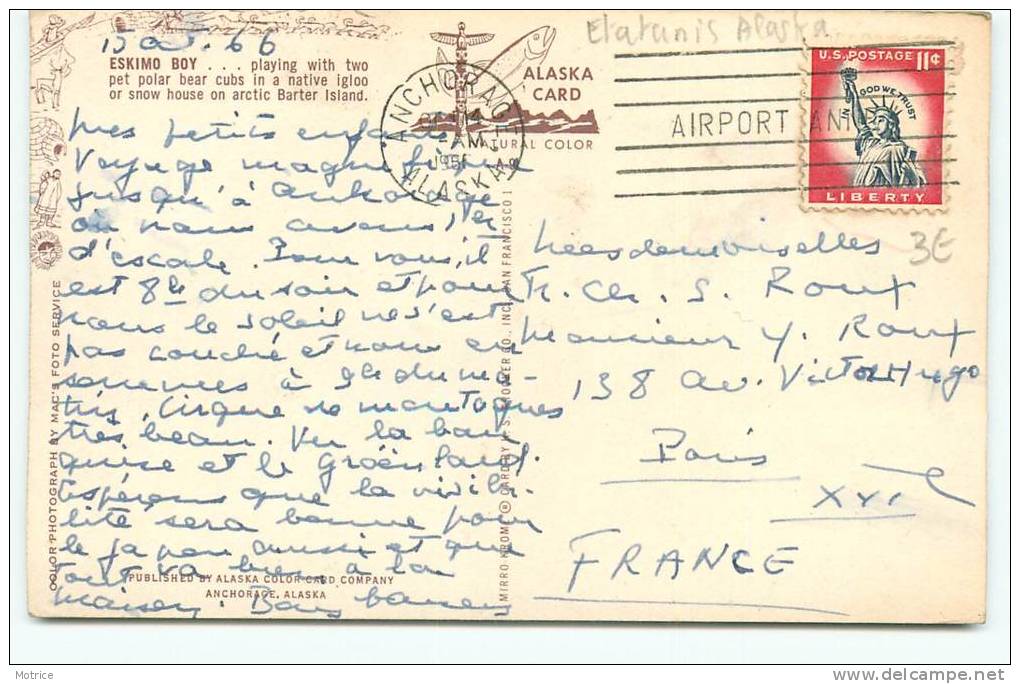 Etatunis Alaska
15 a . 66
ESKIMO BOY . . . playing with two
pet polar bear cubs in a native igloo
or snow house on arctic Barter Island.
ALASKA
CARD
NATURAL COLOR
ANCHORAGE
AM
ALASKA
AIRPORT
U.S. POSTAGE 11¢
IN GOD WE TRUST
LIBERTY
3E
mes petits enfants
Voyage magnifique
jusqu'à
où nous avons
d'escale. Pour vous, il
est 8h du soir et pour
nous le soleil ne s'est
pas couché et nous en
sommes à 9h du ma-
tin. Cirque de montagnes
très beau. Vu la ban
quise et le Groënland.
Espérons que la visibi-
lité sera bonne pour
le japon aussi et que
tout va bien à la
maison. Bons baisers
Mesdemoiselles
Fr. Ch. S. Roux
Monsieur Y. Roux
138 av. Victor Hugo
Paris
XVI
FRANCE
COLOR PHOTOGRAPH BY MAC'S FOTO SERVICE
PUBLISHED BY ALASKA COLOR CARD COMPANY
ANCHORAGE, ALASKA
MIRRO-KROME ® CARD BY H. S. CROCKER CO., INC. SAN FRANCISCO 1
Motrice
www.delcampe.net